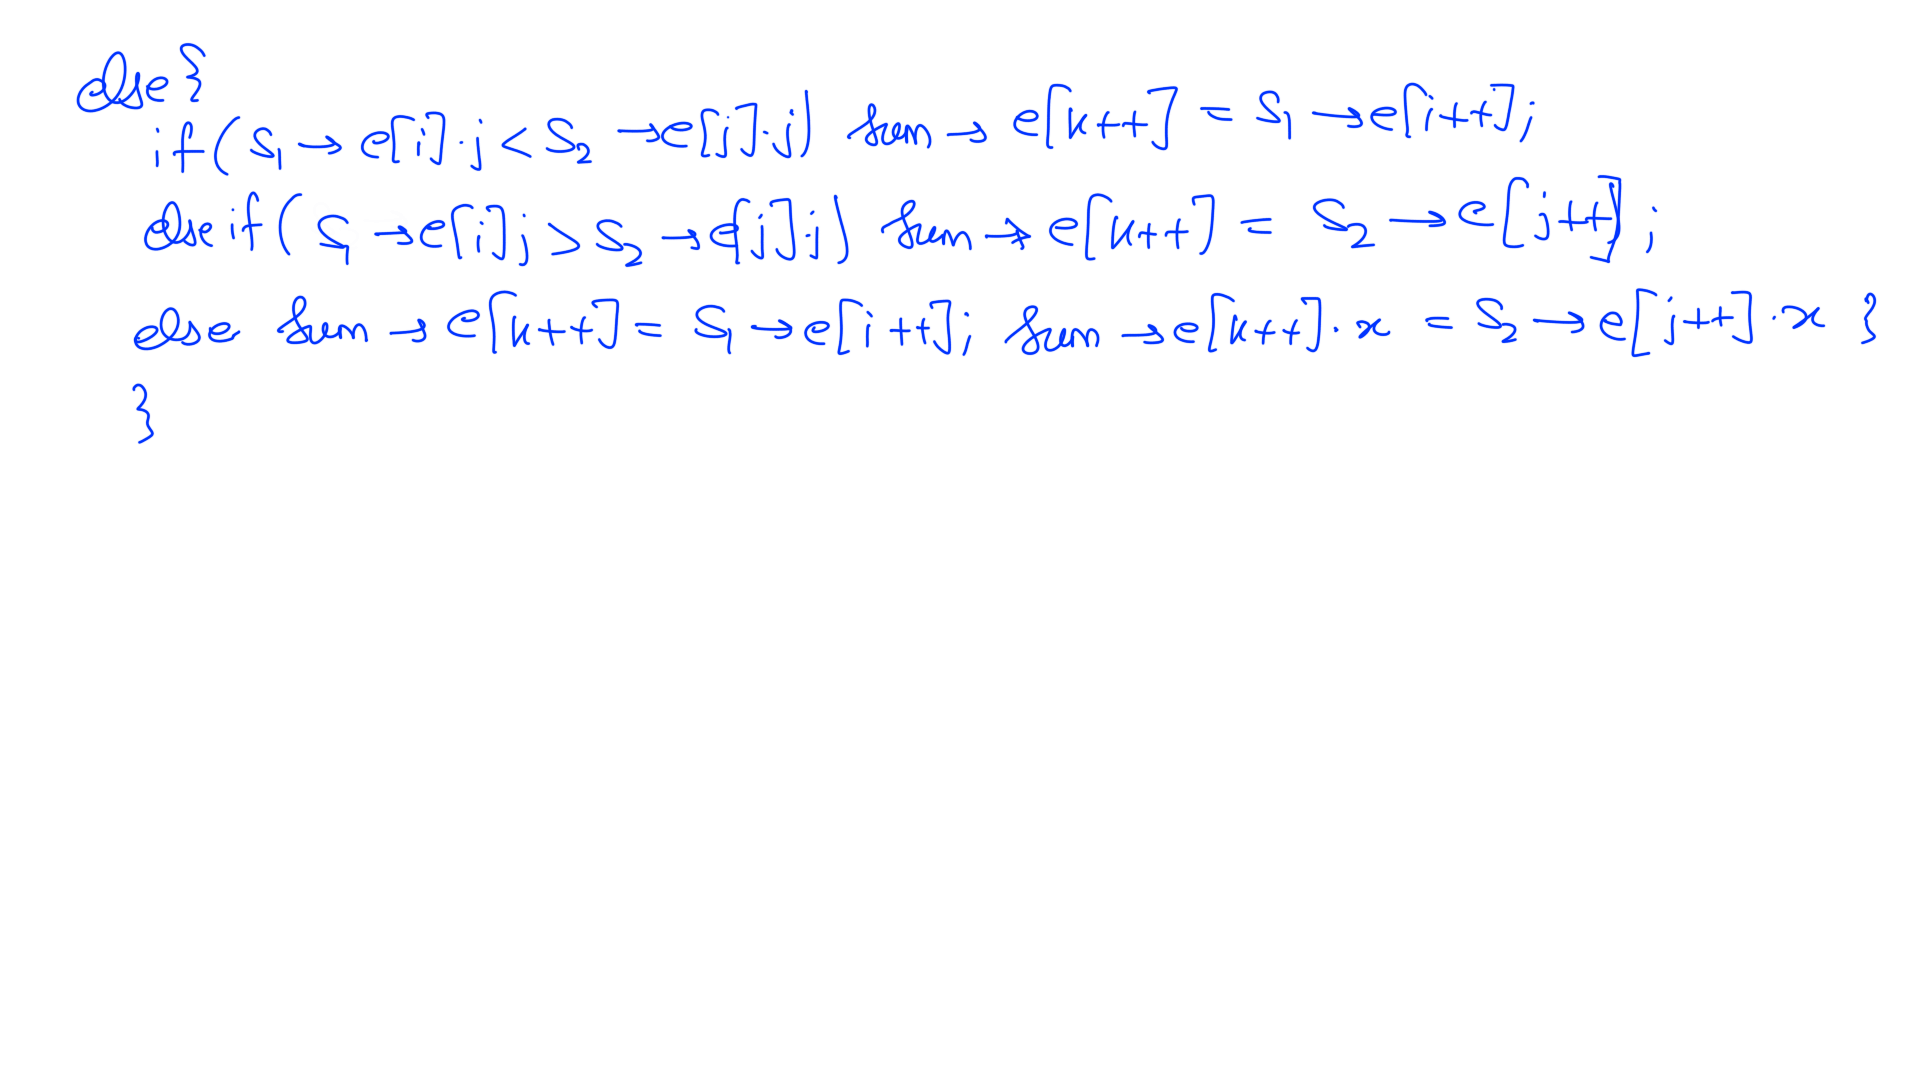 else{
if(S1→e[i].j<S2→e[j].j) sum→e[k++] = S1→e[i++];
else if(S1→e[i]j>S2→e[j].j) sum→e[k++] = S2→e[j++];
else sum→e[k++]= S1→e[i++]; sum→e[k++].x = S2→e[j++].x }
}